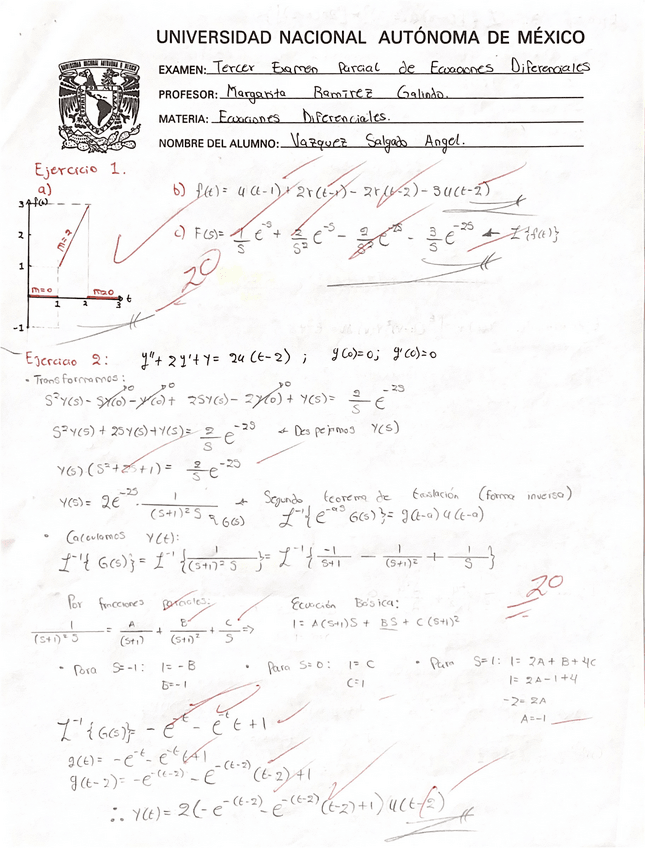 UNIVERSIDAD NACIONAL AUTÓNOMA DE MÉXICO
EXAMEN: Tercer Examen Parcial de Ecuaciones Diferenciales
PROFESOR: Margarita Ramírez Galindo.
MATERIA: Ecuaciones Diferenciales.
NOMBRE DEL ALUMNO: Vazquez Salgado Angel.
Ejercicio 1.
a)
b) f(t)= u(t-1)+2r(t-1)-2r(t-2)-3u(t-2)
3 f(t)
2
m=2
1
m=0 m=0 t
1 2 3
-1
c) F(s)= 1/s e^-s + 2/s² e^-s - 2/s² e^-2s - 3/s e^-2s ← ℒ{f(t)}
20
Ejercicio 2: y''+2y'+y= 2u(t-2) ; y(0)=0; y'(0)=0
• Transformamos:
s²Y(s)-sy(0)-y'(0)+ 2sY(s)-2y(0)+Y(s)= 2/s e^-2s
s²Y(s)+2sY(s)+Y(s)= 2/s e^-2s ← Despejamos Y(s)
Y(s)(s²+2s+1)= 2/s e^-2s
Y(s)= 2e^-2s · 1/((s+1)² s) G(s) ← Segundo teorema de traslación (forma inversa)
ℒ^-1{e^-as G(s)}= g(t-a)u(t-a)
• Calculamos Y(t):
ℒ^-1{G(s)}= ℒ^-1{1/((s+1)² s)}= ℒ^-1{-1/(s+1) - 1/(s+1)² + 1/s}
20
Por fracciones parciales:
1/((s+1)² s) = A/(s+1) + B/(s+1)² + C/s =>
Ecuación Básica:
1= A(s+1)s + Bs + C(s+1)²
• Para s=-1: 1=-B
B=-1
• Para s=0: 1=C
C=1
• Para s=1: 1=2A+B+4C
1=2A-1+4
-2=2A
A=-1
ℒ^-1{G(s)}= -e^-t - e^-t t+1
g(t)= -e^-t - e^-t t+1
g(t-2)= -e^-(t-2) - e^-(t-2) (t-2)+1
∴ Y(t)= 2(-e^-(t-2) - e^-(t-2) (t-2)+1) u(t-2)